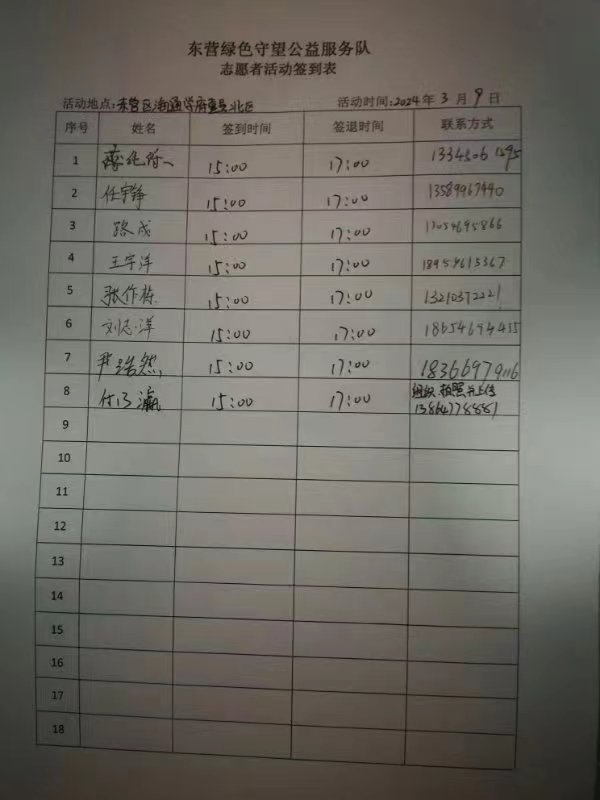 东营绿色守望公益服务队
志愿者活动签到表
活动地点:东营区海通学府壹号北区 活动时间:2024年3月9日
序号 姓名 签到时间 签退时间 联系方式
1 15:00 17:00
2 任宇铮 15:00 17:00 13589967440
3 路成 15:00 17:00
4 王宇洋 15:00 17:00 18954613367
5 张作栋 15:00 17:00 13210372221
6 刘志洋 15:00 17:00 18654694455
7 尹浩然 15:00 17:00 18366979116
8 15:00 17:00 组织 拍照并上传
13864778881
9
10
11
12
13
14
15
16
17
18